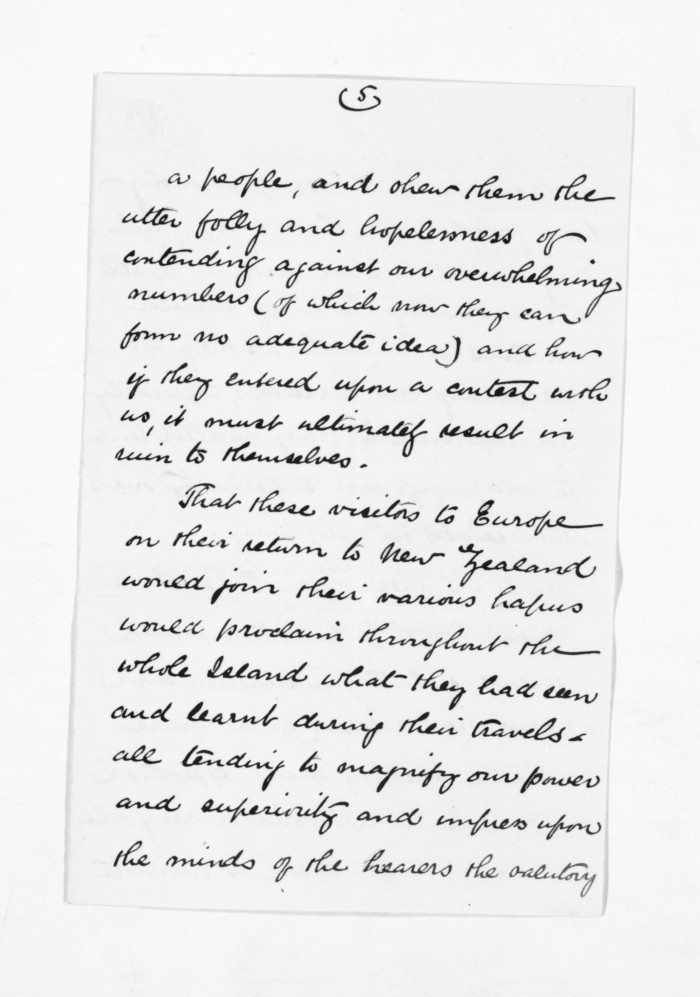 (5)
a people, and shew them the
utter folly and hopelessness of
contending against our overwhelming
numbers (of which now they can
form no adequate idea) and how
if they entered upon a contest with
us, it must ultimately result in
ruin to themselves.
That these visitors to Europe
on their return to New Zealand
would join their various hapus
would proclaim throughout the
whole Island what they had seen
and learnt during their travels -
all tending to magnify our power
and superiority and impress upon
the minds of the hearers the salutory